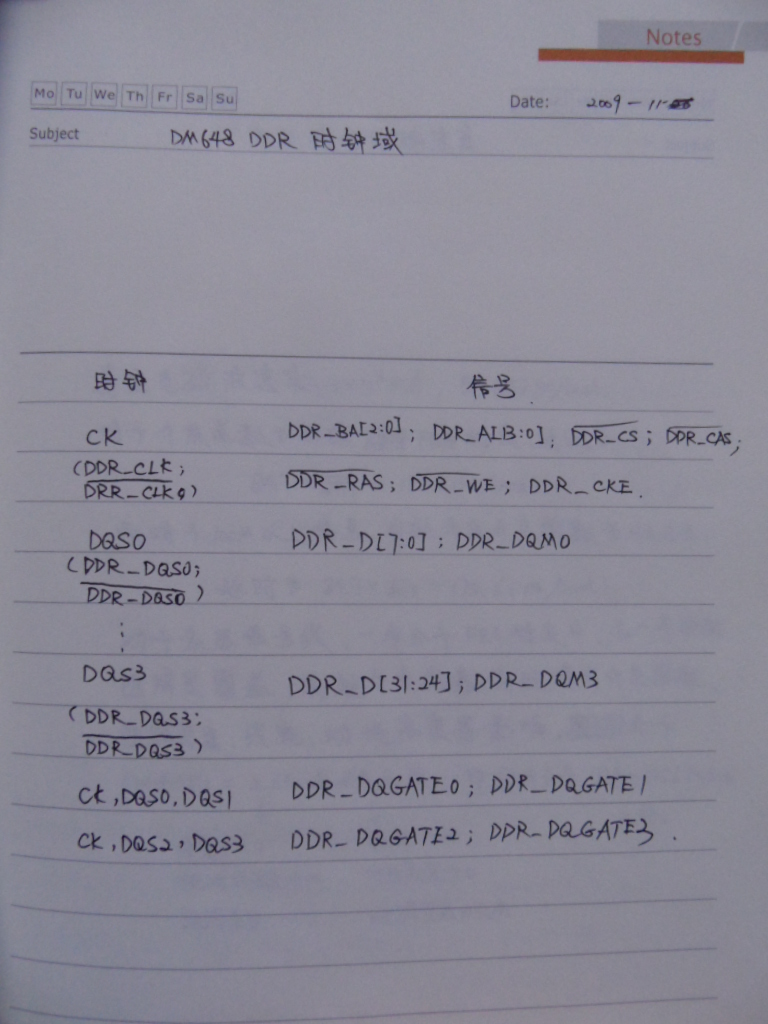 Notes
Mo Tu We Th Fr Sa Su
Date: 2009-11-
Subject DM648 DDR 时钟域
时钟 信号.
CK DDR_BA[2:0]; DDR_A[13:0]; DDR_CS; DDR_CAS;
(DDR_CLK; DDR_RAS; DDR_WE; DDR_CKE.
DRR_CLK0)
DQS0 DDR_D[7:0]; DDR_DQM0
(DDR_DQS0;
DDR_DQS0)
⋮
DQS3 DDR_D[31:24]; DDR_DQM3
(DDR_DQS3;
DDR_DQS3)
CK, DQS0, DQS1 DDR_DQGATE0; DDR_DQGATE1
CK, DQS2, DQS3 DDR_DQGATE2; DDR_DQGATE3.